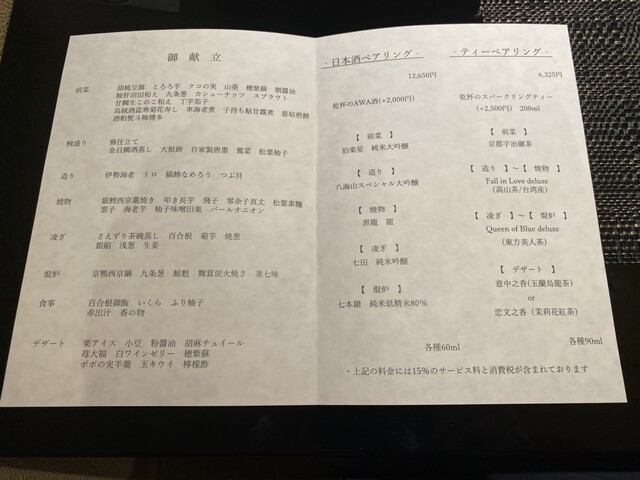 御献立
前菜
胡桃豆腐 とろろ芋 クコの実 山葵 穂紫蘇 割醤油
鮟肝沼田和え 九条葱 カシューナッツ スプラウト
甘鯛生このこ和え 丁字茄子
烏賊酒盗寒菊花寿し 車海老煮 子持ち鮎甘露煮 慈姑煎餅
酒粕熨斗梅博多
椀盛り
蕪仕立て
金目鯛酒蒸し 大根餅 自家製唐墨 鶯菜 松葉柚子
造り
伊勢海老 トロ 縞鯵なめろう つぶ貝
焼物
銀鱈西京藁焼き 叩き長芋 飛子 零余子真丈 松葉素麺
雲子 海老芋 柚子味噌田楽 パールオニオン
凌ぎ
さえずり茶碗蒸し 百合根 菊芋 焼葱
銀餡 浅葱 生姜
焜炉
京鴨西京鍋 九条葱 鯨麩 舞茸炭火焼き 黒七味
食事
百合根御飯 いくら ふり柚子
赤出汁 香の物
デザート
栗アイス 小豆 粉醤油 胡麻チュイール
苺大福 白ワインゼリー 穂紫蘇
ポポの実羊羹 玉キウイ 檸檬酢
- 日本酒ペアリング -
12,650円
乾杯のAWA酒(+2,000円)
【 前菜 】
伯楽星 純米大吟醸
【 造り 】
八海山スペシャル大吟醸
【 焼物 】
黒龍 龍
【 凌ぎ 】
七田 純米吟醸
【 焜炉 】
七本鎗 純米低精米80%
各種60ml
- ティーペアリング -
6,325円
乾杯のスパークリングティー
(+2,500円) 200ml
【 前菜 】
京都宇治碾茶
【 造り 】～【 焼物 】
Fall in Love deluxe
(高山茶/台湾産)
【 凌ぎ 】～【 焜炉 】
Queen of Blue deluxe
(東方美人茶)
【 デザート 】
意中之香(玉蘭烏龍茶)
or
恋文之香（茉莉花紅茶）
各種90ml
・上記の料金には15%のサービス料と消費税が含まれております